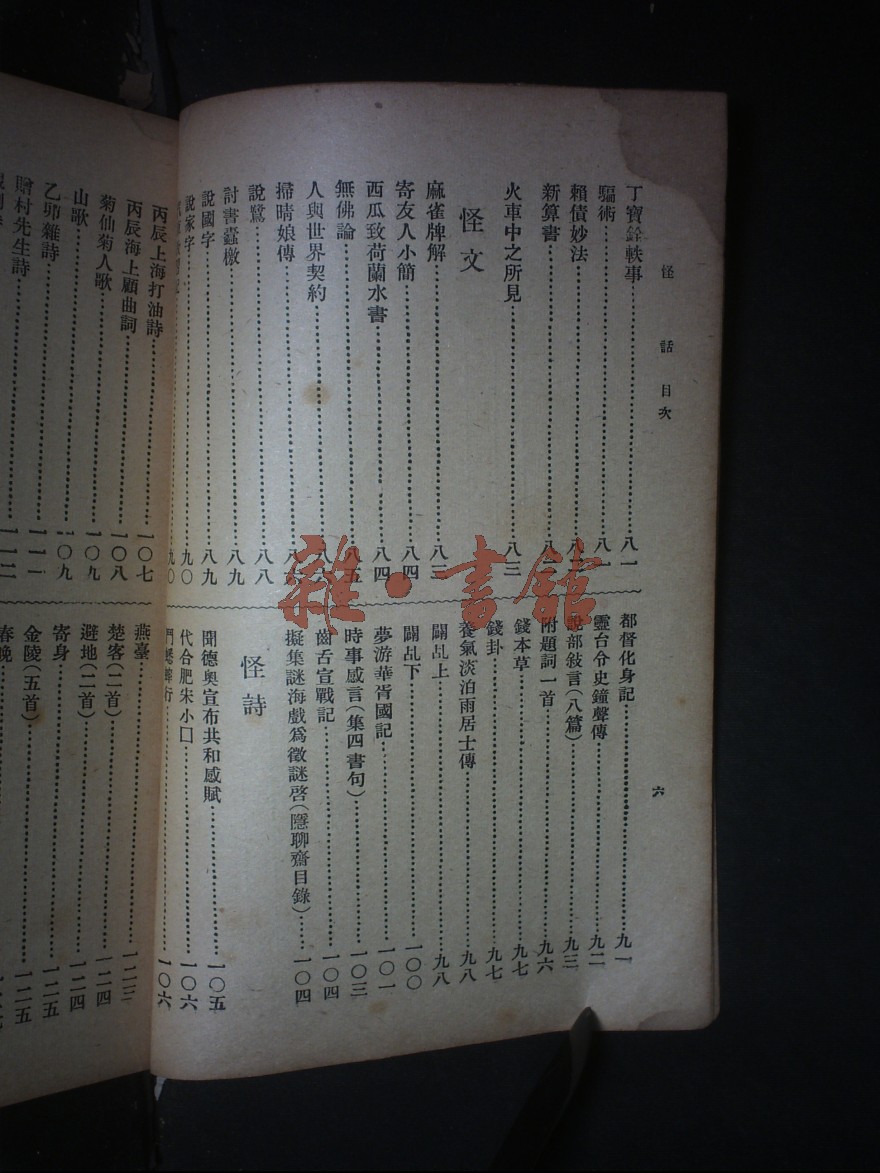 怪話目次
六
丁寶銓軼事八一
騙術八一
賴債妙法
新算書八二
火車中之所見八三
怪文
麻雀牌解八三
寄友人小簡八四
西瓜致荷蘭水書八四
無佛論八五
人與世界契約
掃晴娘傳
說鵞八八
討書蠹檄八九
說國字八九
說家字九〇
九〇
都督化身記九一
靈台令史鐘聲傳九二
說部敍言(八篇)九三
附題詞一首九六
錢本草九七
錢卦九七
養氣淡泊雨居士傳九八
鬭乩上九八
鬭乩下一〇〇
夢游華胥國記一〇一
時事感言(集四書句)一〇三
齒舌宣戰記一〇四
擬集謎海戲爲徵謎啓(隱聊齋目錄)一〇四
怪詩
聞德奧宣布共和感賦一〇五
代合肥宋小囗一〇六
鬥蟋蟀行一〇六
丙辰上海打油詩一〇七
丙辰海上顧曲詞一〇八
菊仙菊人歌一〇九
山歌一〇九
乙卯雜詩一一一
贈村先生詩一一二
燕臺一二三
楚客(二首)一二四
避地(二首)一二四
寄身一二五
金陵(五首)一二五
春晚
雜·書館